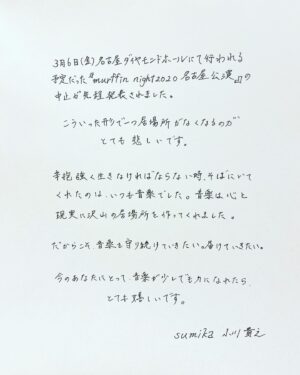 3月6日(金)名古屋ダイヤモンドホールにて行われる
予定だった『murffin night 2020 名古屋公演』の
中止が先程発表されました。
こういった形で一つ居場所がなくなるのが
とても悲しいです。
辛抱強く生きなければならない時、そばにいて
くれたのは、いつも音楽でした。音楽は心と
現実に沢山の居場所を作ってくれました。
だからこそ、音楽を守り続けていきたい。届けていきたい。
今のあなたにとって、音楽が少しでも力になれたら、
とても嬉しいです。
sumika 小川貴之